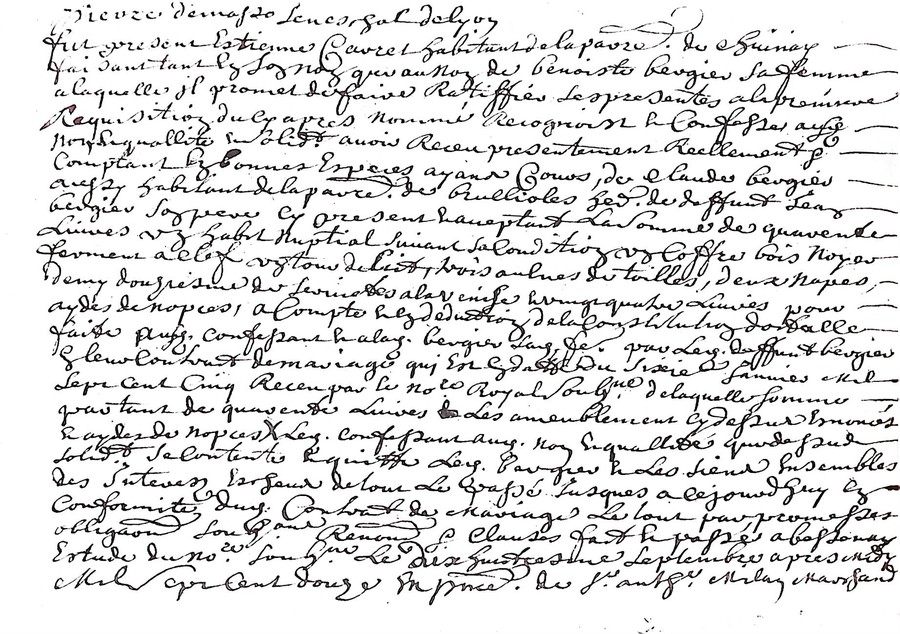 Pierre demasso seneschal de lyon
fut present Estienne Cavret habitant de la parre. de Chuinay
faisant tant En son nom que au nom de benoiste bergier sa femme
a laquelle il promet de faire Ratiffier Les presentes a la premiere
Requisition du cy apres nommé Recognoist & Confesse au
nom & quallité solid.t avoir Receu presentement Reellement &
Comptant En bonnes Especes ayant Cours, de Claude bergier
aussy habitant de la parre. de brullioles hed. de deffunt Jean
bergier son pere Cy present & aceptant La somme de quarente
Livres un habit Nuptial suivant sa Condition un Coffre bois Noyer
ferment a clef un tour de Lict, trois aulnes de toilles, deux Napes,
demy douzesme de serviettes a la venise & vingt quatre Livres pour
aydes de nopces, a Compte & En deduction de la Constitution dotalle
faite aud. confessant & a lad. bergier sa fe. par Led. deffunt bergier
En leur Contract de mariage qui Est En datte du sixie. Janvier Mil
Sept Cent Cinq Receu par le no.re Royal soub.ne de laquelle somme
partant de quarente Livres & Les ameublement Cy dessus Enoncés
& aydes de nopces Led. confessant aud. nom & quallité que dessus
solid.t se contente & quitte Led. bergier & Les siens Ensembles
des Interest Escheus de tout Le passé Jusques a ce jourd'huy En
Conformité dud. Contract de Mariage Le tout par promesses
obligaon soub.aons Renond. & Clauses fait & passé a bessenay
Estude du no.re soub.ne Le dixhuictiesme septembre apres Midy
Mil sept Cent douze En pnce. de s.r anth.e Milan Marchand